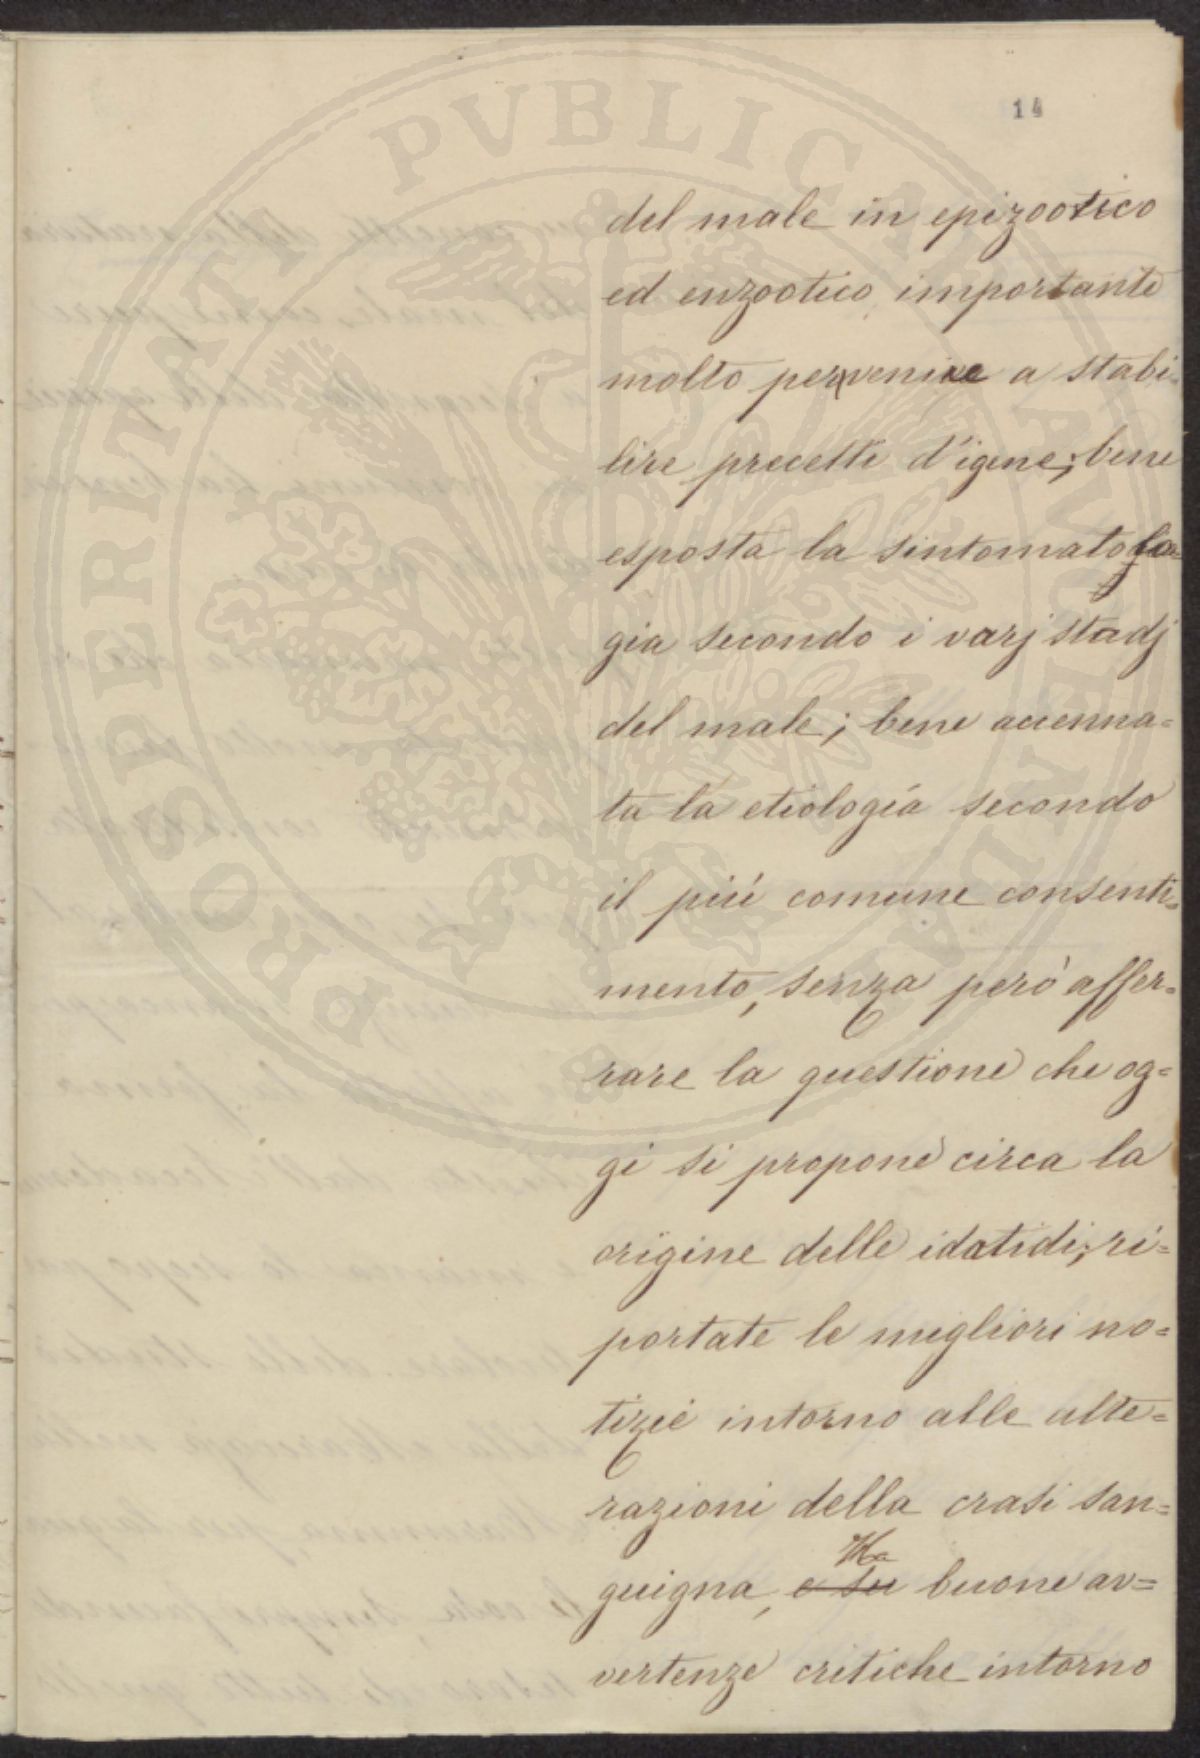 14
del male in epizootico
ed enzootico, importante
molto pervenire a stabi-
lire precetti d'igene; bene
esposta la sintomatolo-
gia secondo i varj stadj
del male; bene accenna=
ta la etiologia secondo
il più comune consenti=
mento, senza però affer=
rare la questione che og=
gi si propone circa la
origine delle idatidi; ri=
portate le migliori no=
tizie intorno alle alte=
razioni della crasi san=
Ha
guigna, e su buone av=
vertenze critiche intorno
PROSPERITATI PVBLICAE AVGENDAE